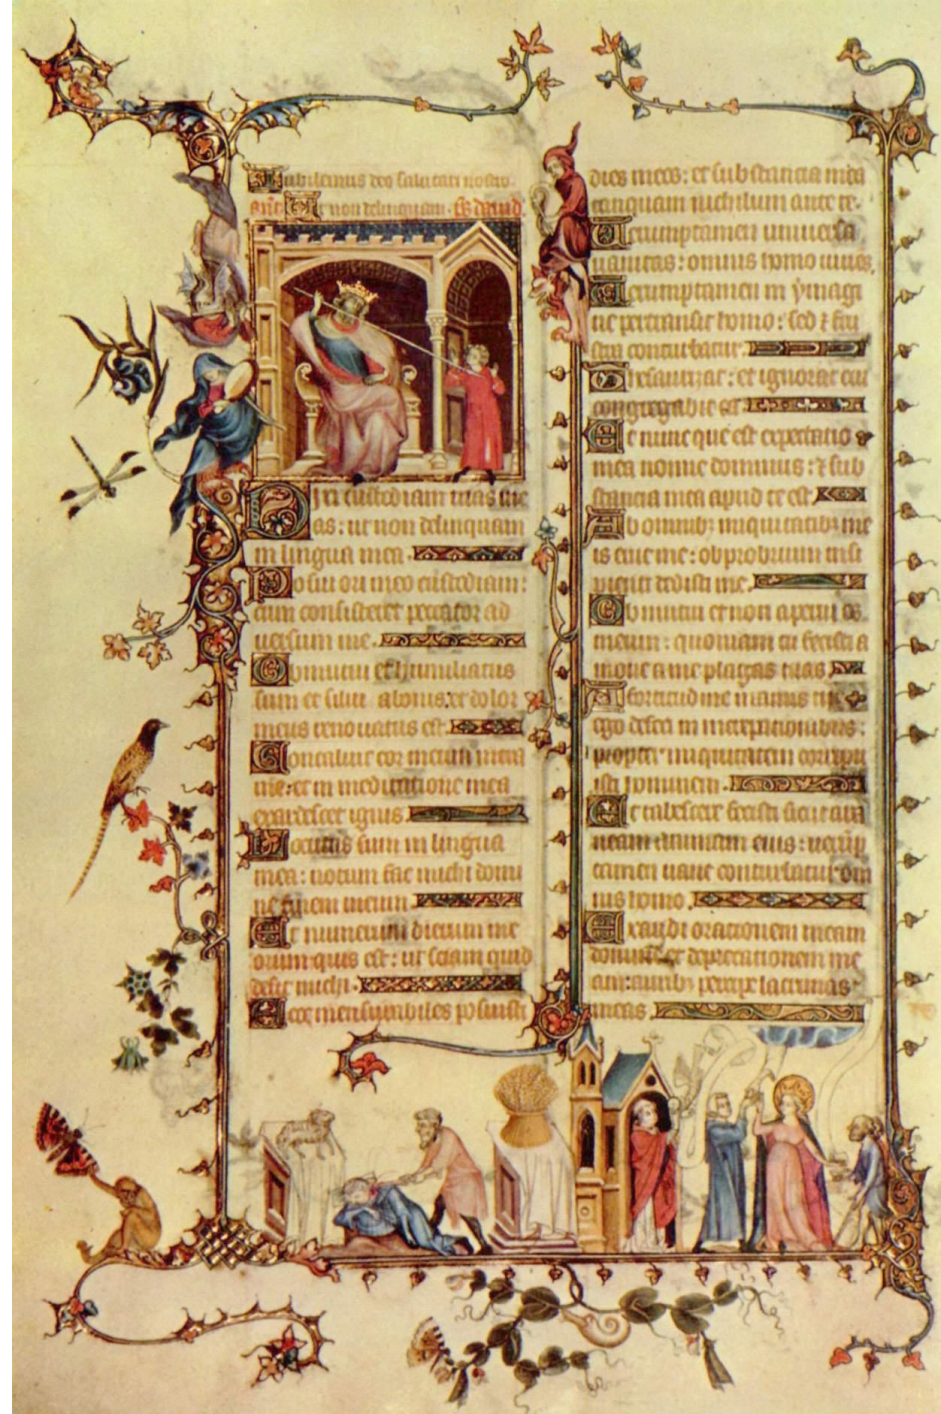 Jubilemus deo salutari nostro.
ut non delinquam. ps david.
Dixi custodiam vias me
as: ut non delinquam
in lingua mea.
Posui ori meo custodiam:
cum consisteret peccator ad
versum me.
Obmutui et humiliatus
sum et silui a bonis: et dolor
meus renovatus est.
Concaluit cor meum intra
me: et in meditatione mea
exardescet ignis.
Locutus sum in lingua
mea: notum fac michi domi
ne finem meum.
Et numerum dierum me
orum quis est: ut sciam quid
desit michi.
Ecce mensurabiles posuisti
dies meos: et substancia mea
tanquam nichilum ante te.
Verumptamen universa
vanitas: omnis homo vivens.
Verumptamen in ymagi
ne pertransit homo: sed et fru
stra conturbatur.
Thesaurizat: et ignorat cui
congregabit ea.
Et nunc que est expectatio
mea nonne dominus: et sub
stancia mea apud te est
Ab omnibus iniquitatibus me
is erue me: obprobrium insi
pienti dedisti me.
Obmutui et non aperui os
meum: quoniam tu fecisti a
move a me plagas tuas
A fortitudine manus tue
ego defeci in increpationibus:
propter iniquitatem corripu
isti hominem.
Et tabescere fecisti sicut ara
neam animam eius: verump
tamen vane conturbatur om
nis homo.
Exaudi orationem meam
domine et deprecationem me
am: auribus percipe lacrimas
meas.